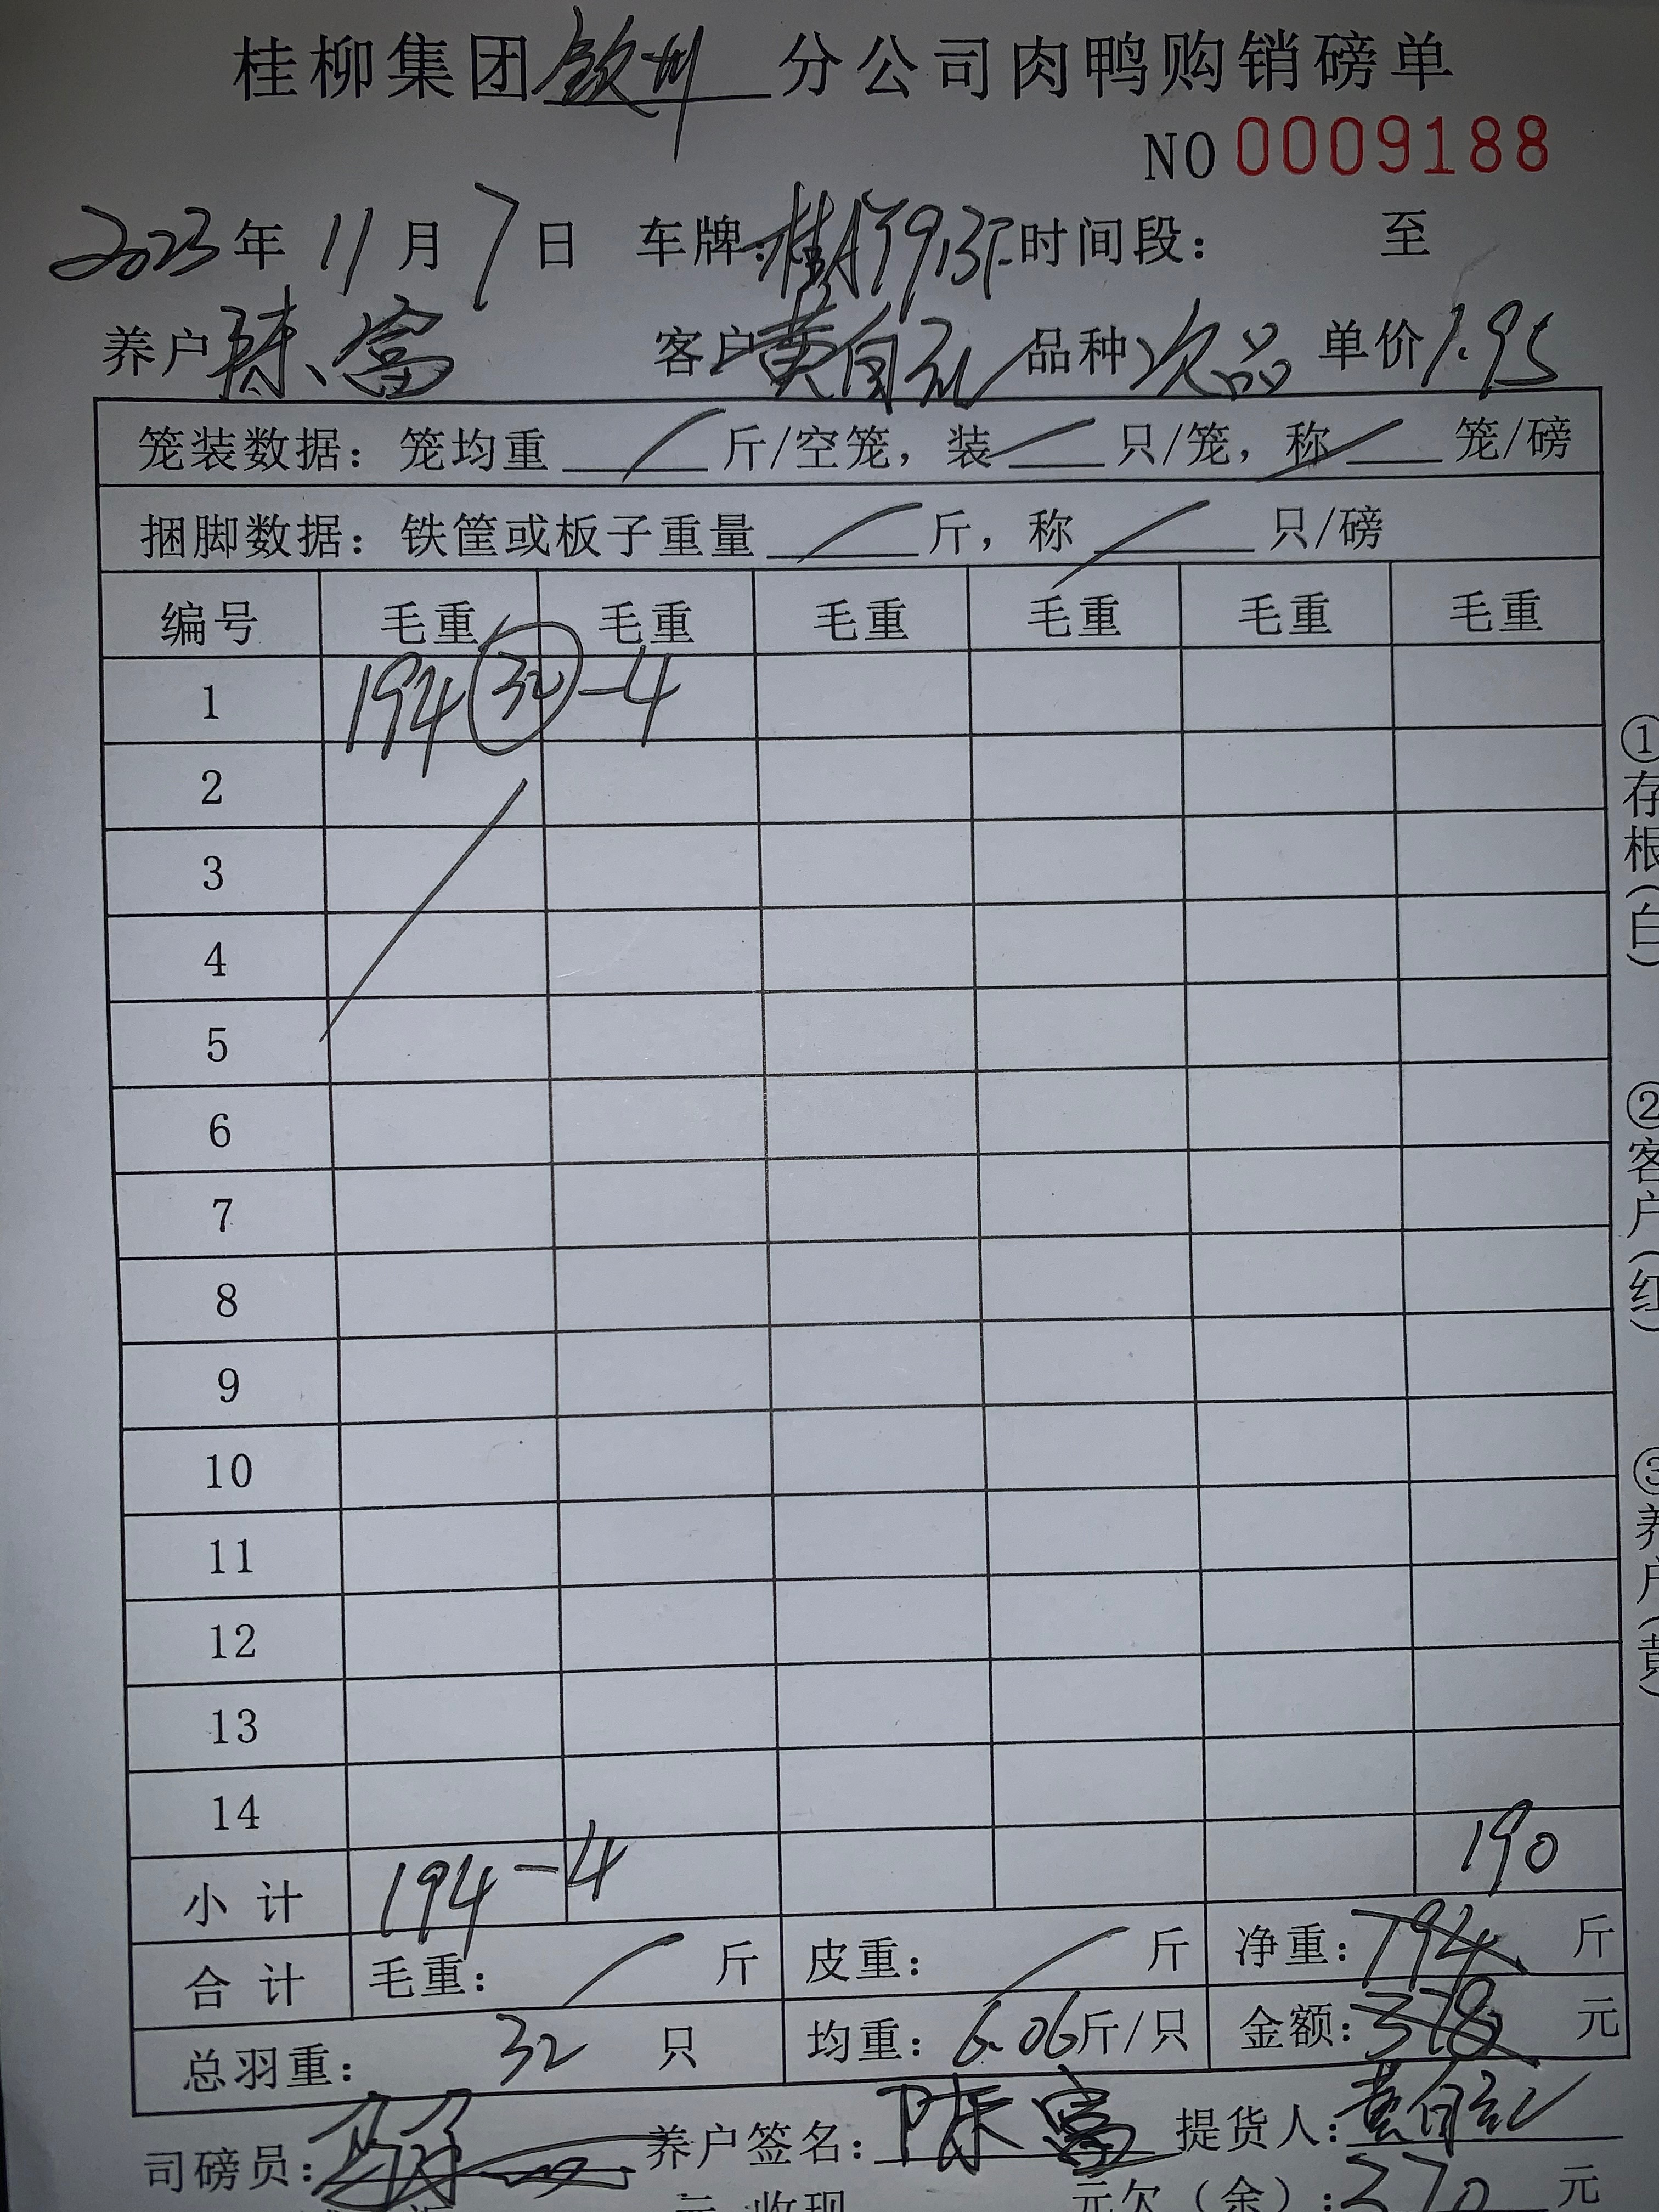 桂柳集团钦州分公司肉鸭购销磅单
NO 0009188
2023年11月7日 车牌: 时间段: 至
养户陈富 客户黄自礼 品种次品 单价1.95
笼装数据: 笼均重 斤/空笼, 装 只/笼, 称 笼/磅
捆脚数据: 铁筐或板子重量 斤, 称 只/磅
编号 毛重 毛重 毛重 毛重 毛重 毛重
1 194 32 -4
2
3
4
5
6
7
8
9
10
11
12
13
14
小计 194 -4 190
合计 毛重: 斤 皮重: 斤 净重: 194 斤
总羽重: 32 只 均重: 6.06斤/只 金额: 378 元
司磅员: 养户签名: 陈富 提货人: 黄自礼
收现 元欠(余): 370 元
①存根(白)
②客户(红)
③养户(黄)